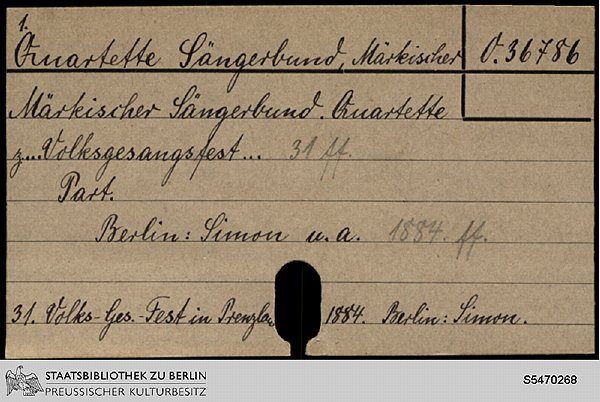 1.
Quartette Sängerbund, Märkischer O. 36786
Märkischer Sängerbund. Quartette
z... Volksgesangsfest... 31 ff.
Part.
Berlin: Simon u. a. 1884. ff.
31. Volks-Ges.-Fest in Prenzlau 1884. Berlin: Simon.
STAATSBIBLIOTHEK ZU BERLIN
PREUSSISCHER KULTURBESITZ
S5470268